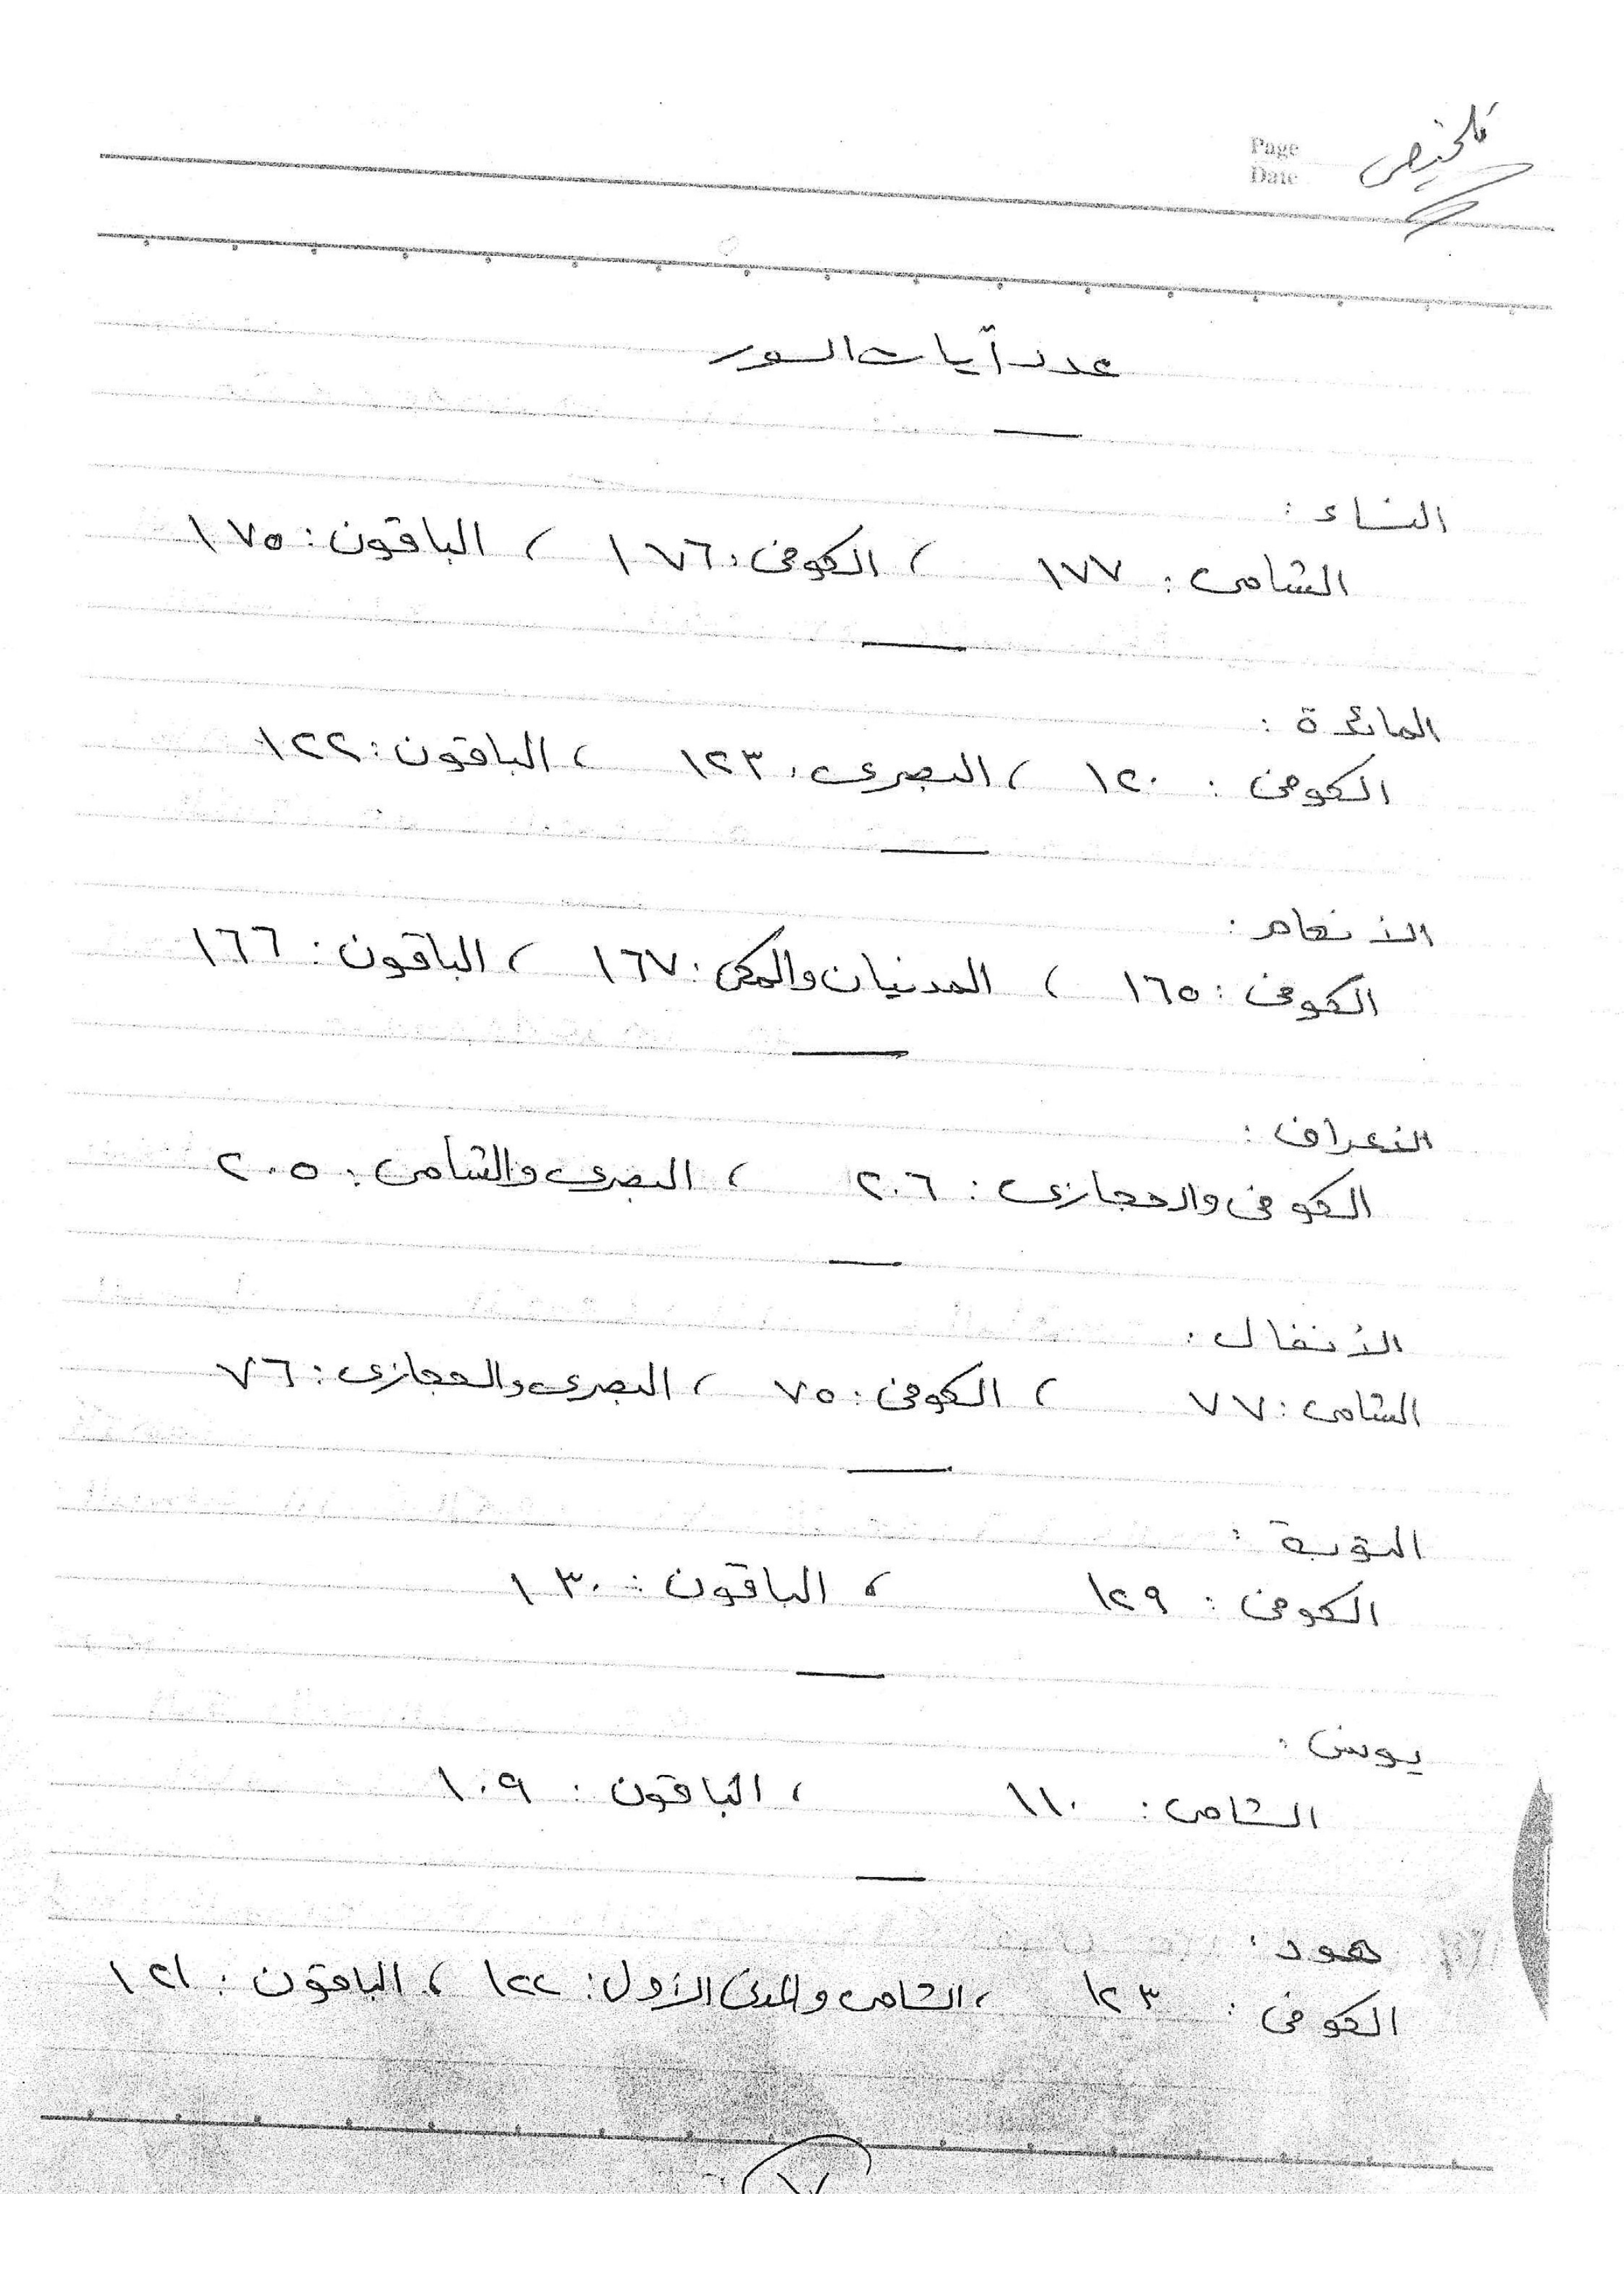 Page
تلخيص
Date
عدد آيات السور
النساء :
الشامى : ١٧٧ ، الكوفى : ١٧٦ ، الباقون : ١٧٥
المائدة :
الكوفى : ١٢٠ ، البصرى : ١٢٣ ، الباقون : ١٢٢
الأنعام :
الكوفى : ١٦٥ ، المدنيان والمكى : ١٦٧ ، الباقون : ١٦٦
الأعراف :
الكوفى والحجازى : ٢٠٦ ، البصرى والشامى : ٢٠٥
الأنفال :
الشامى : ٧٧ ، الكوفى : ٧٥ ، البصرى والحجازى : ٧٦
التوبة :
الكوفى : ١٢٩ ، الباقون : ١٣٠
يونس :
الشامى : ١١٠ ، الباقون : ١٠٩
هود :
الكوفى : ١٢٣ ، الشامى والمدنى الأول : ١٢٢ ، الباقون : ١٢١
٧